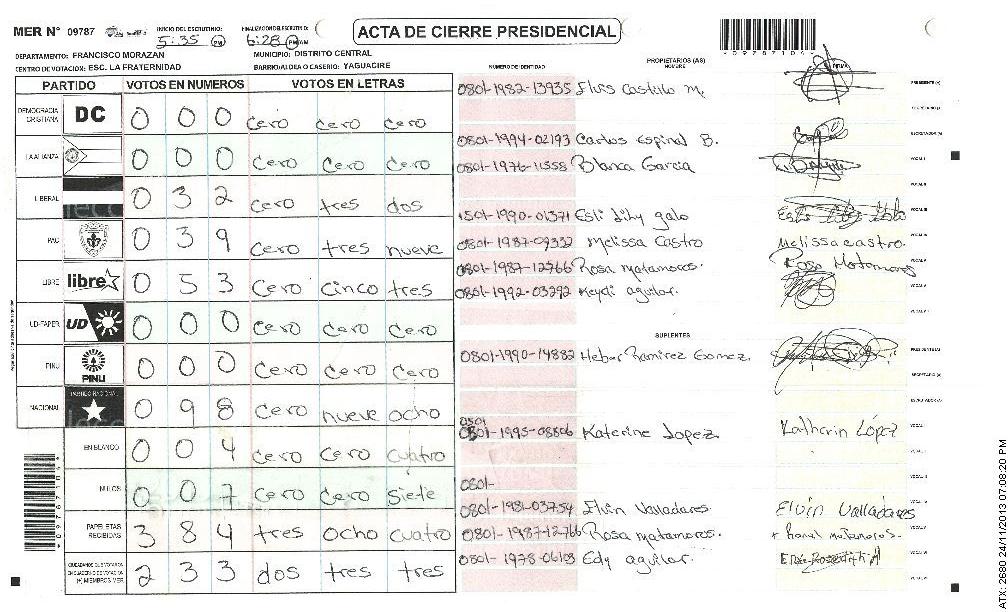 MER N° 09787
INICIO DEL ESCRUTINIO: 5:35 PM
FINALIZACION DEL ESCRUTINIO: 6:28 PM
ACTA DE CIERRE PRESIDENCIAL
DEPARTAMENTO: FRANCISCO MORAZAN
MUNICIPIO: DISTRITO CENTRAL
CENTRO DE VOTACION: ESC. LA FRATERNIDAD
BARRIO/ALDEA O CASERIO: YAGUACIRE
PARTIDO VOTOS EN NUMEROS VOTOS EN LETRAS
DEMOCRACIA CRISTIANA DC 0 0 0 cero cero cero
LA ALIANZA 0 0 0 cero cero cero
LIBERAL 0 3 2 cero tres dos
PAC 0 3 9 cero tres nueve
LIBRE libre 0 5 3 cero cinco tres
UD-FAPER UD 0 0 0 cero cero cero
PINU PINU 0 0 0 cero cero cero
NACIONAL PARTIDO NACIONAL 0 9 8 cero nueve ocho
EN BLANCO 0 0 4 cero cero cuatro
NULOS 0 0 7 cero cero siete
PAPELETAS RECIBIDAS 3 8 4 tres ocho cuatro
CIUDADANOS QUE VOTARON EN CUADERNO DE VOTACION (+) MIEMBROS MER 2 3 3 dos tres tres
NUMERO DE IDENTIDAD
PROPIETARIOS (AS)
NOMBRE
FIRMA
0801-1982-13935 Elvis Castillo M.
PRESIDENTE (A)
SECRETARIO (A)
0801-1994-02193 Carlos Espinal B.
ESCRUTADOR (A)
0801-1976-11558 Blanca Garcia
VOCAL I
VOCAL II
1501-1990-01371 Esli Lily galo
VOCAL III
0801-1987-09332 Melissa Castro Melissa castro.
VOCAL IV
0801-1987-12766 Rosa matamoros. Rosa Matamoros
VOCAL V
0801-1992-03292 Keydi aguilar.
VOCAL VI
SUPLENTES
0801-1990-14882 Heber Ramirez Gomez.
PRESIDENTE (A)
SECRETARIO (A)
ESCRUTADOR (A)
0801-1995-08806 Katerine Lopez Katherin López
VOCAL I
VOCAL II
0801-
VOCAL III
0801-1981-03754 Elvin Valladares Elvin Valladares
VOCAL IV
0801-1987-12766 Rosa matamoros.
VOCAL V
0801-1978-06103 Edy aguilar.
VOCAL VI
*0978710*
ATX: 2680 24/11/2013 07:08:20 PM